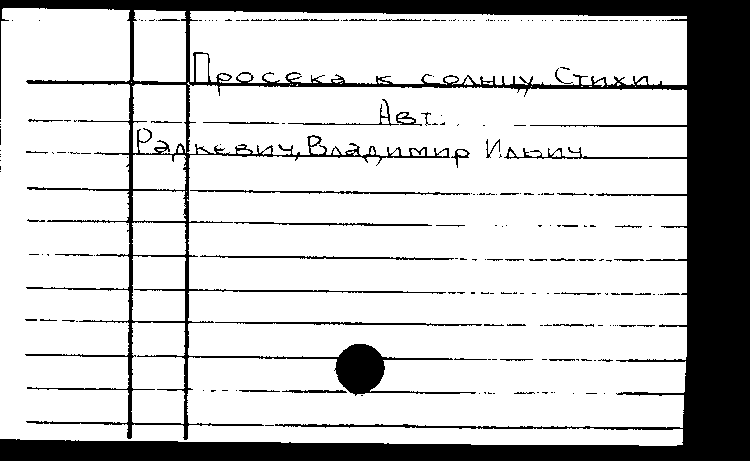 Просека к солнцу. Стихи.
Авт.:
Радкевич, Владимир Ильич.